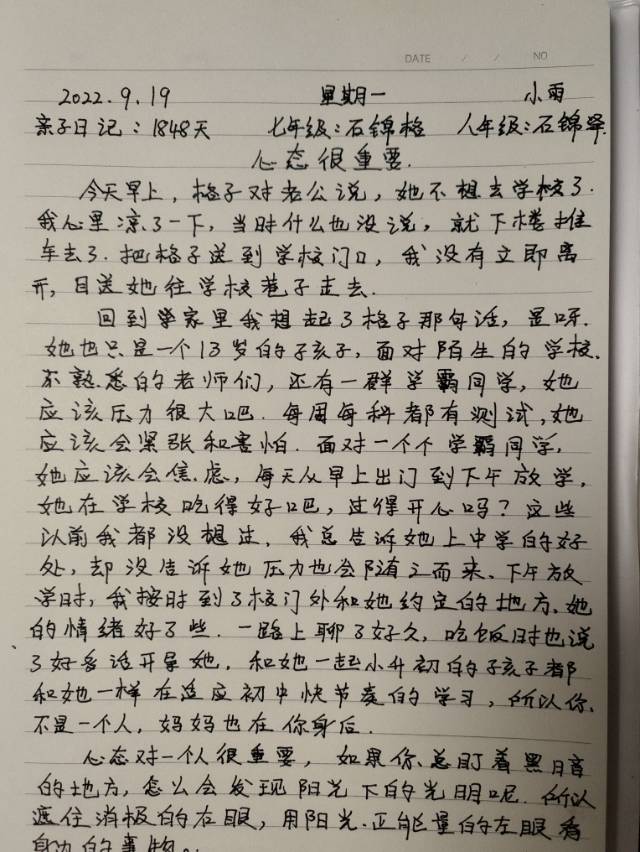 DATE / / NO
2022.9.19 星期一 小雨
亲子日记:1848天 七年级:石锦格 八年级:石锦泽
心态很重要.
今天早上,格子对老公说,她不想去学校了.
我心里凉了一下,当时什么也没说,就下楼推
车去了.把格子送到学校门口,我没有立即离
开,目送她往学校巷子走去.
回到家里我想起了格子那句话,是呀.
她也只是一个13岁的孩子,面对陌生的学校.
不熟悉的老师们,还有一群学霸同学,她
应该压力很大吧.每周每科都有测试,她
应该会紧张和害怕.面对一个个学霸同学,
她应该会焦虑,每天从早上出门到下午放学,
她在学校吃得好吧,过得开心吗?这些
以前我都没想过.我总告诉她上中学的好
处,却没告诉她压力也会随之而来.下午放
学时,我按时到了校门外和她约定的地方.她
的情绪好了些.一路上聊了好久,吃饭时也说
了好多话开导她,和她一起小升初的孩子都
和她一样在适应初中快节奏的学习,所以你
不是一个人,妈妈也在你身后.
心态对一个人很重要,如果你总盯着黑暗
的地方,怎么会发现阳光下的光明呢.所以
遮住消极的右眼,用阳光.正能量的左眼看
身边的事物.